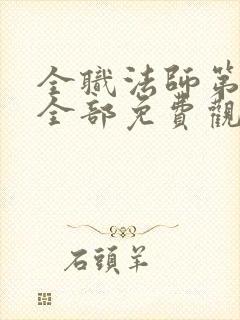 全職法師第
全部免費觀
石頭羊